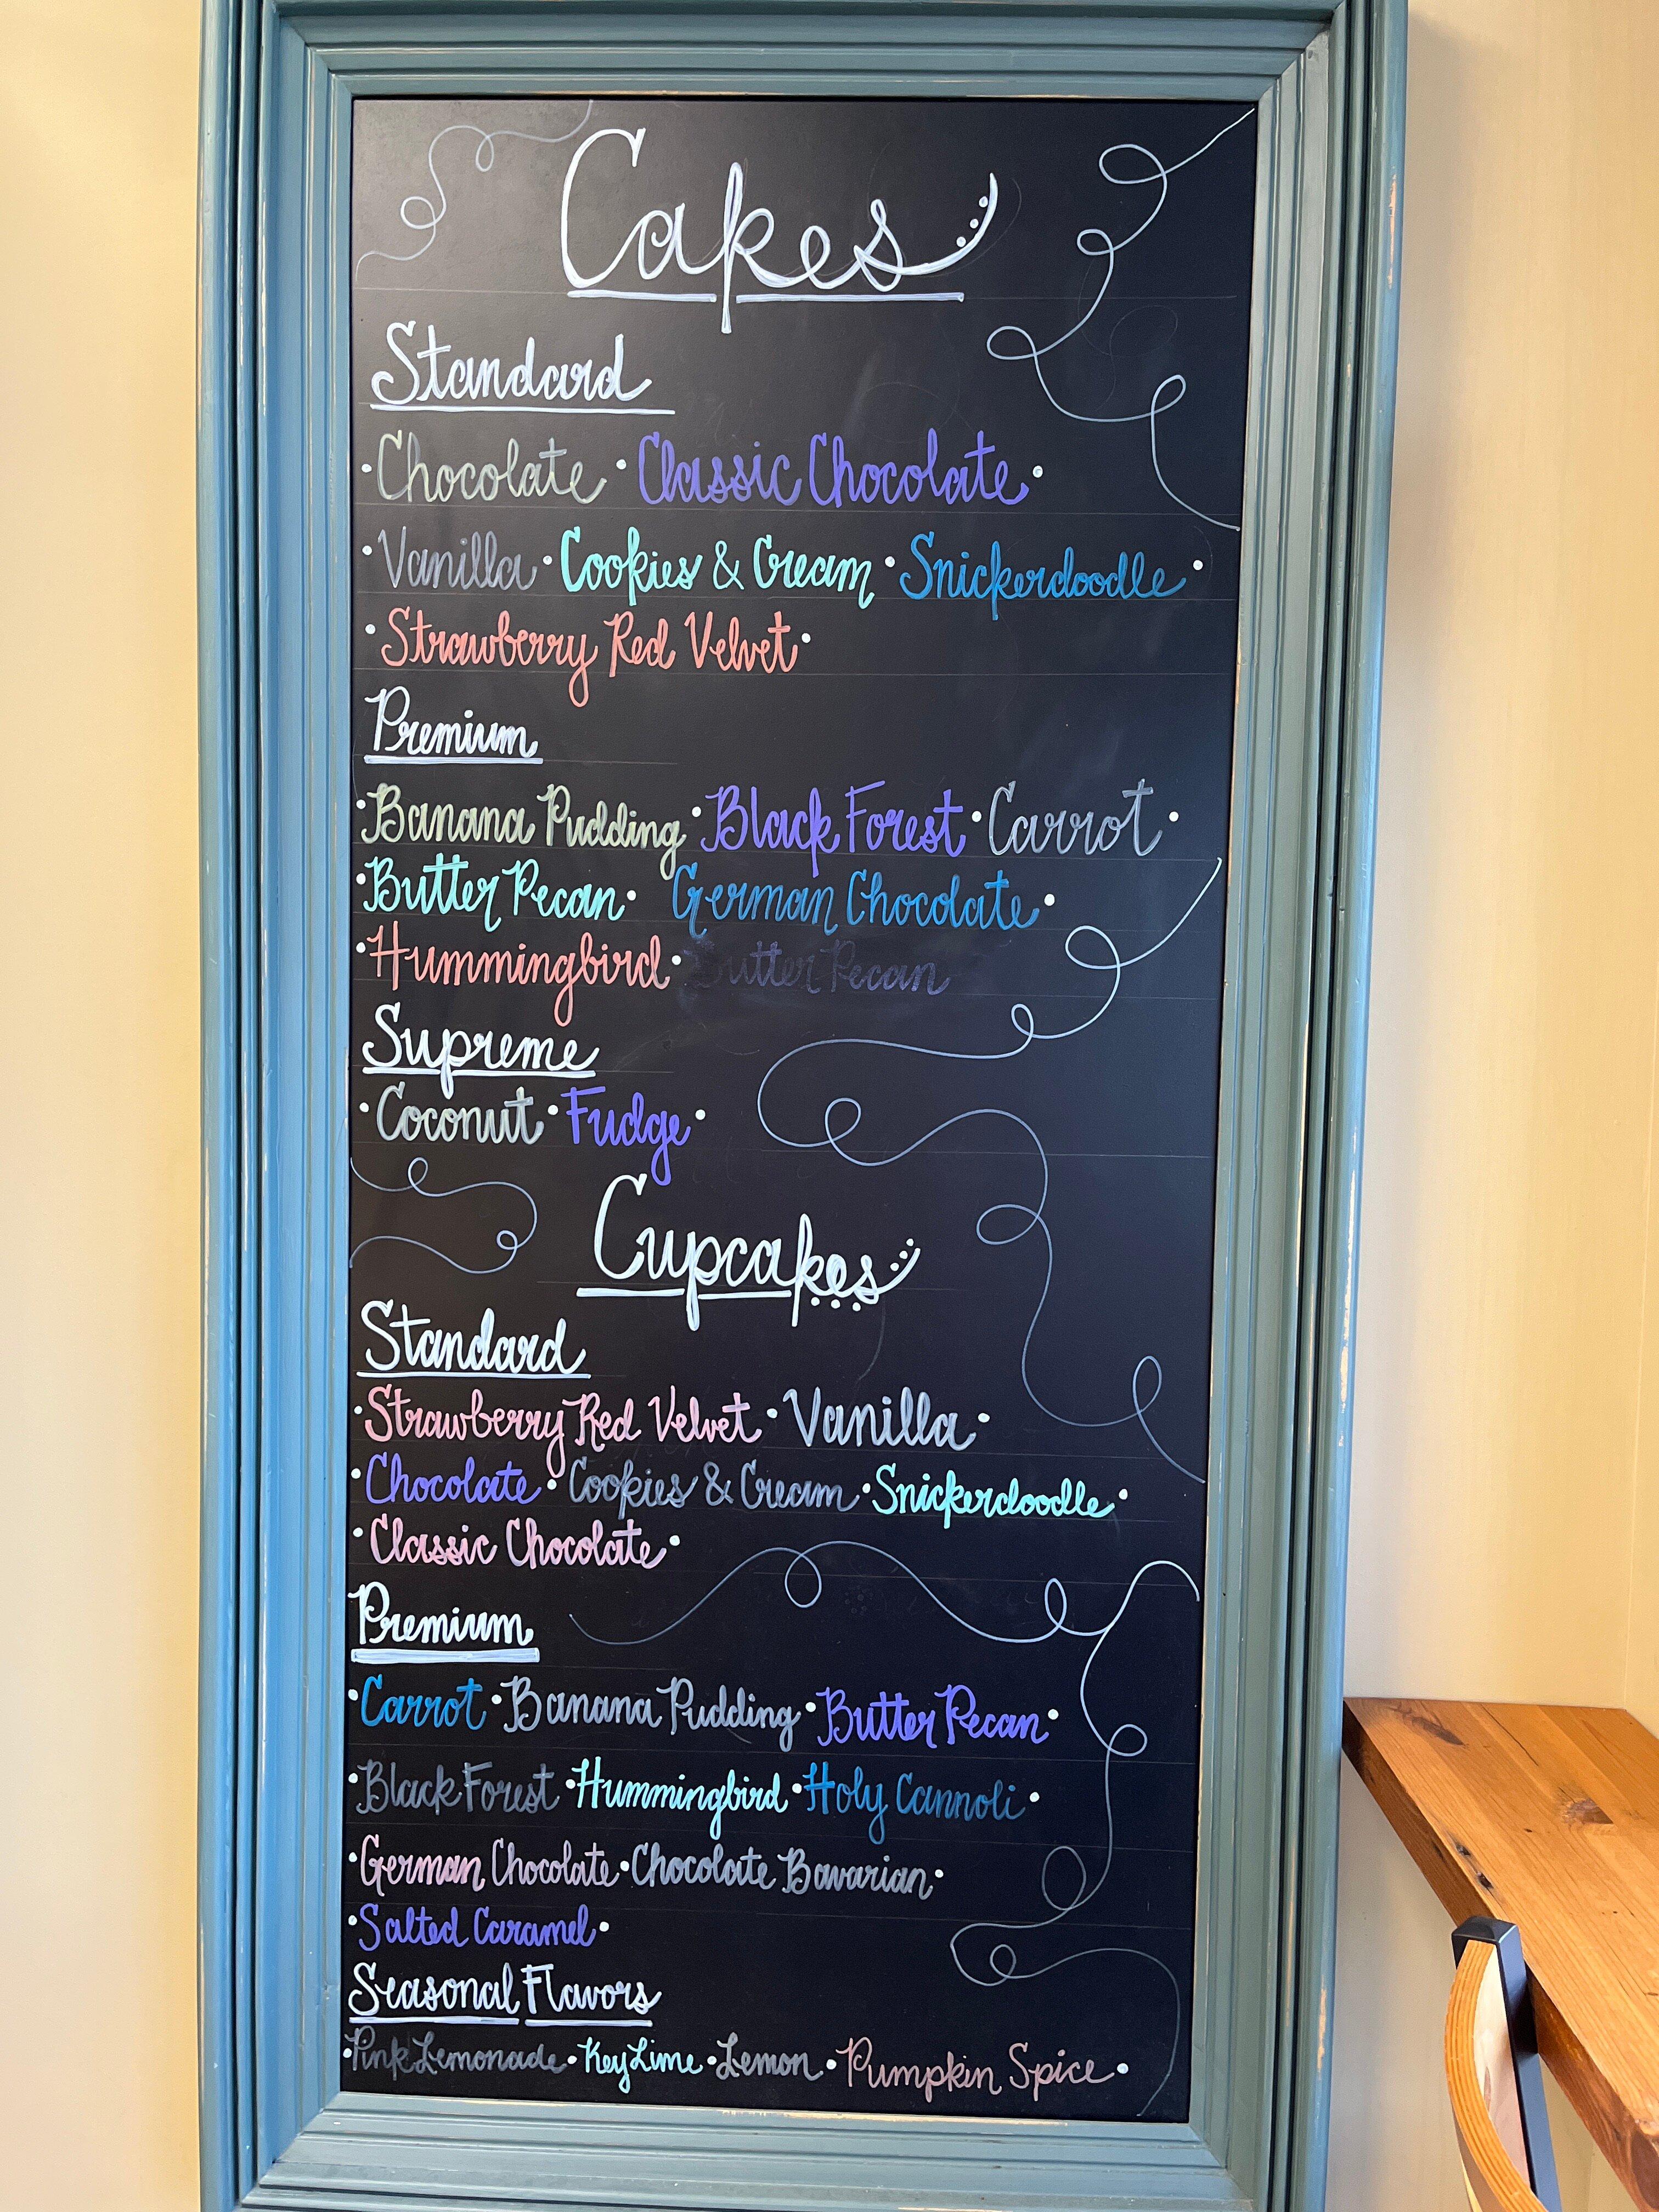 Cakes
Standard
•Chocolate •Classic Chocolate•
•Vanilla •Cookies & Cream •Snickerdoodle•
•Strawberry Red Velvet•
Premium
•Banana Pudding •Black Forest •Carrot•
•Butter Pecan• German Chocolate•
•Hummingbird• Butter Pecan
Supreme
•Coconut •Fudge•
Cupcakes
Standard
•Strawberry Red Velvet •Vanilla•
•Chocolate •Cookies & Cream •Snickerdoodle•
•Classic Chocolate•
Premium
•Carrot •Banana Pudding •Butter Pecan•
•Black Forest •Hummingbird •Holy Cannoli•
•German Chocolate •Chocolate Bavarian•
•Salted Caramel•
Seasonal Flavors
•Pink Lemonade •Key Lime •Lemon •Pumpkin Spice•